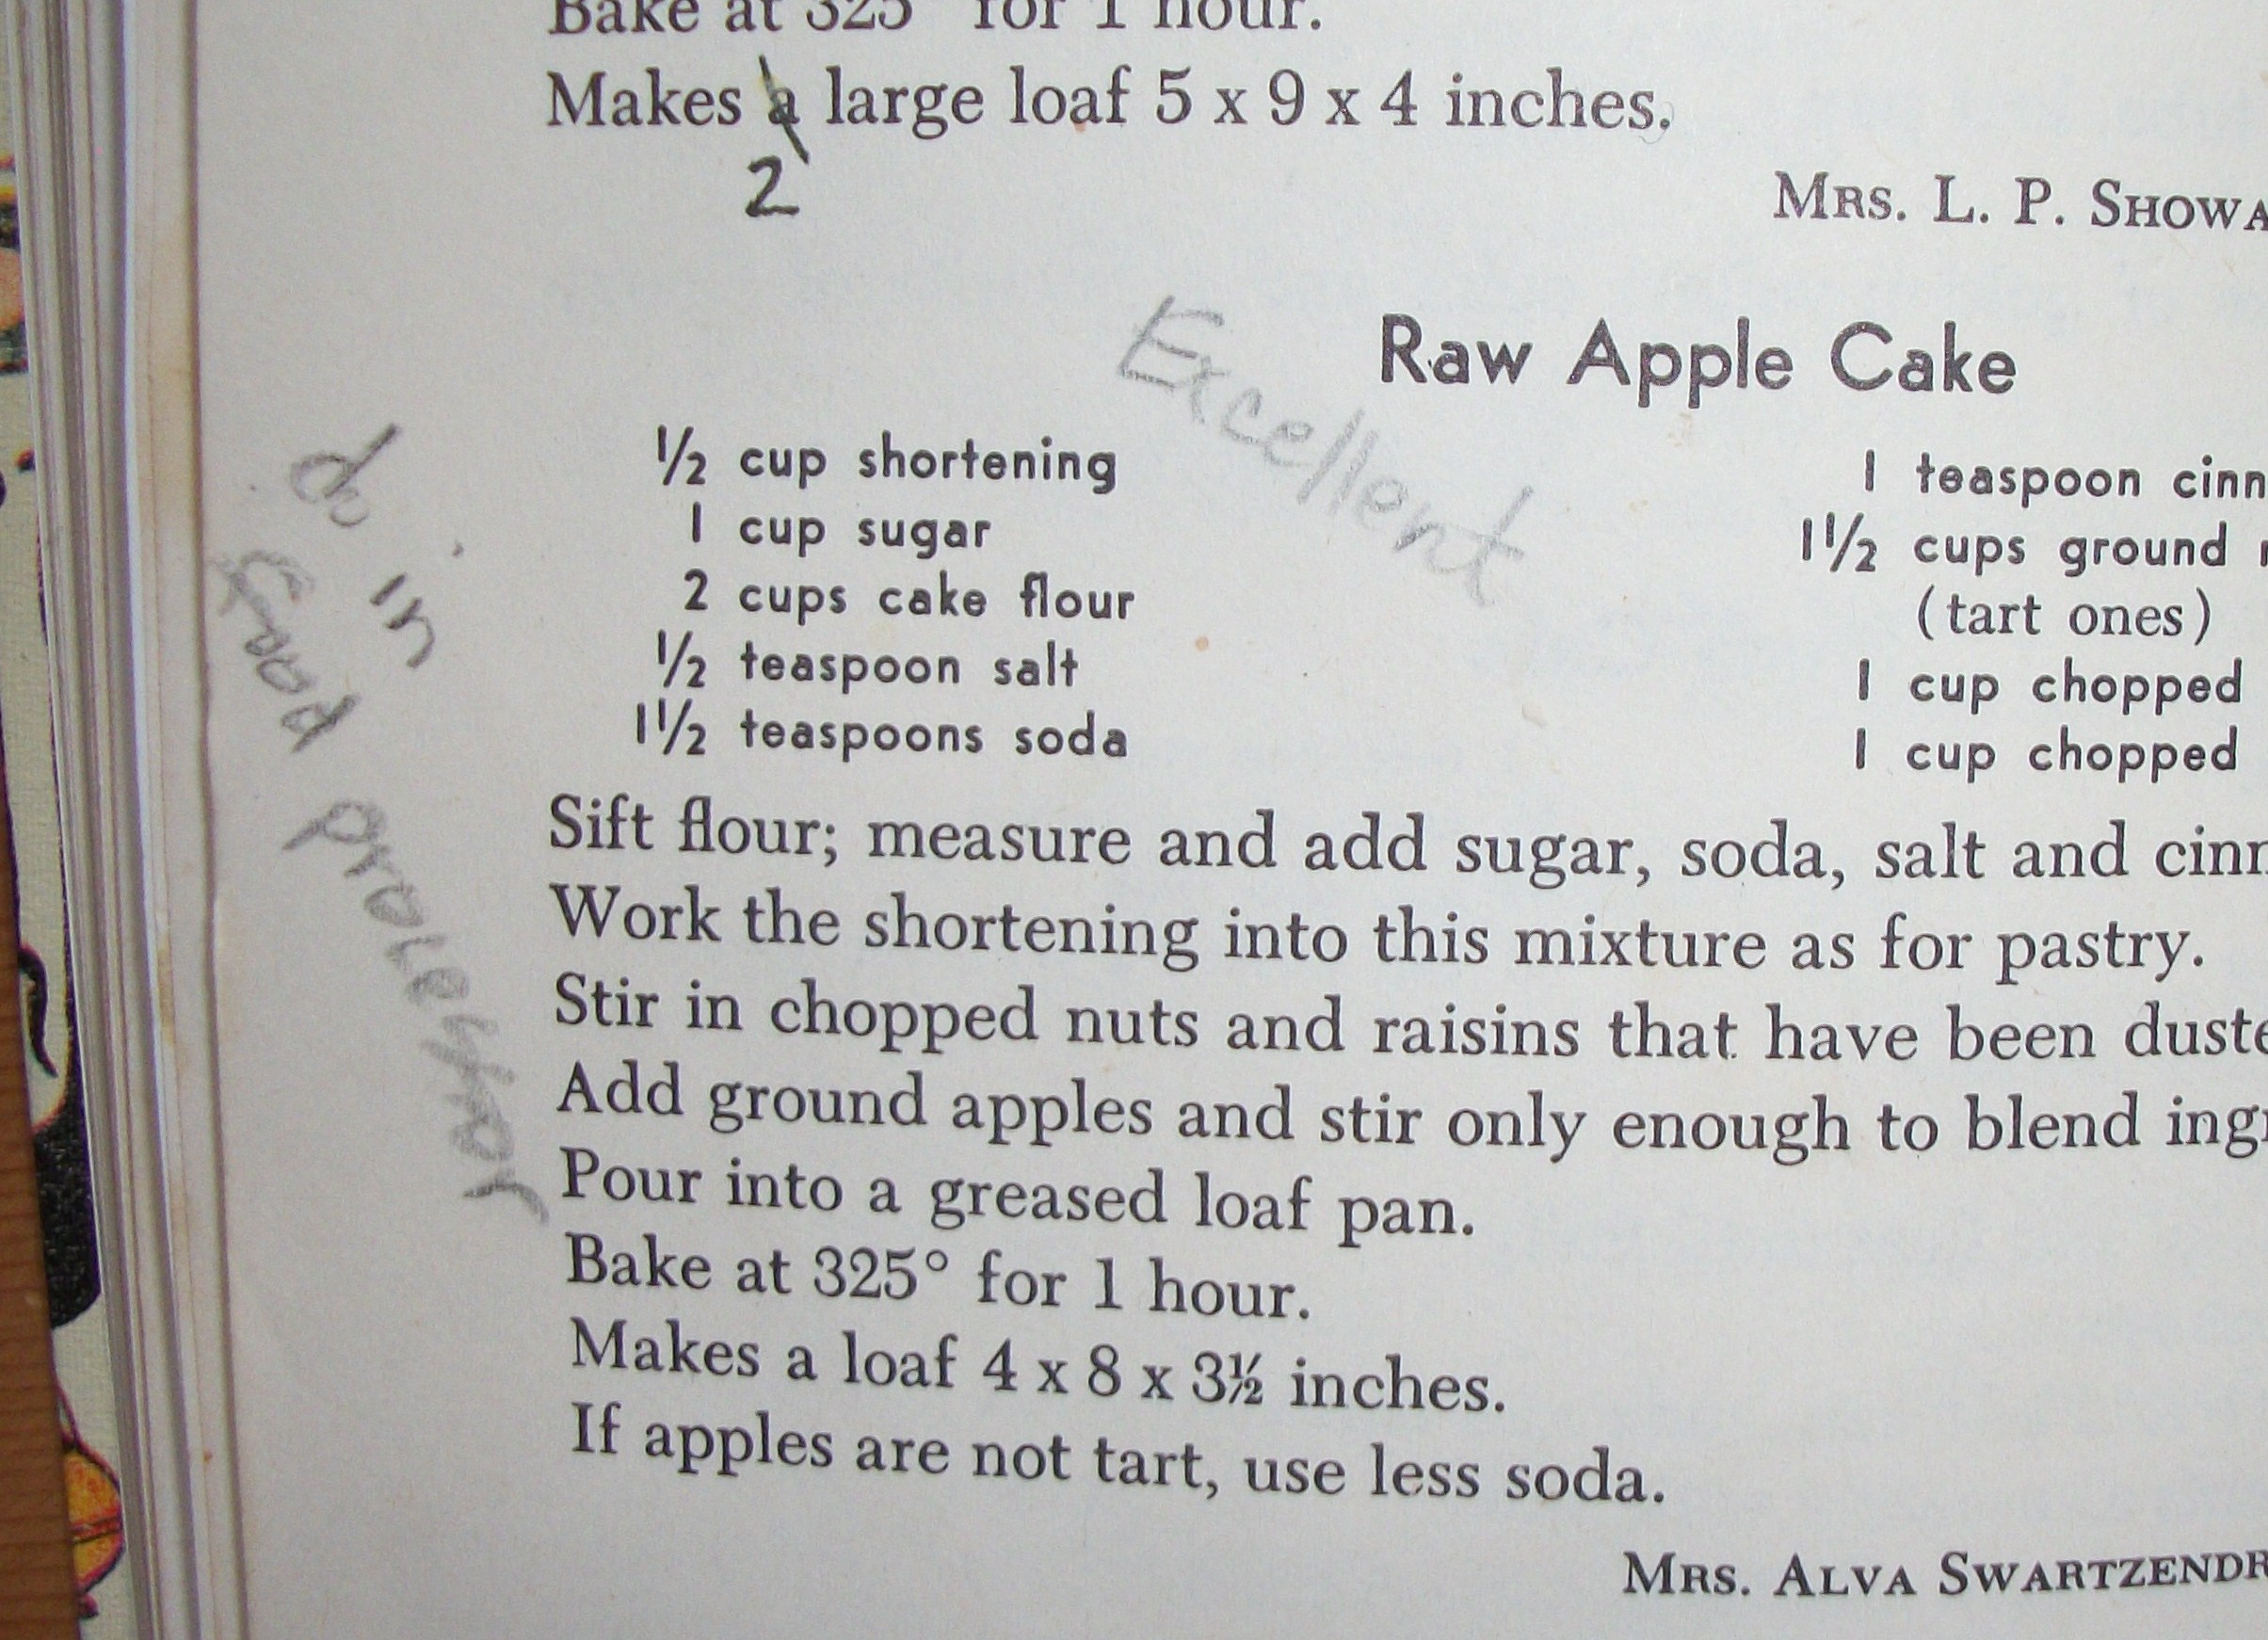 Bake at 325° for 1 hour.
Makes a large loaf 5 x 9 x 4 inches.
2
Mrs. L. P. Showa
Excellent
Raw Apple Cake
½ cup shortening
1 cup sugar
2 cups cake flour
½ teaspoon salt
1½ teaspoons soda
1 teaspoon cinn
1½ cups ground
(tart ones)
1 cup chopped
1 cup chopped
do in
food processor
Sift flour; measure and add sugar, soda, salt and cinn
Work the shortening into this mixture as for pastry.
Stir in chopped nuts and raisins that have been duste
Add ground apples and stir only enough to blend ingr
Pour into a greased loaf pan.
Bake at 325° for 1 hour.
Makes a loaf 4 x 8 x 3½ inches.
If apples are not tart, use less soda.
Mrs. Alva Swartzendr